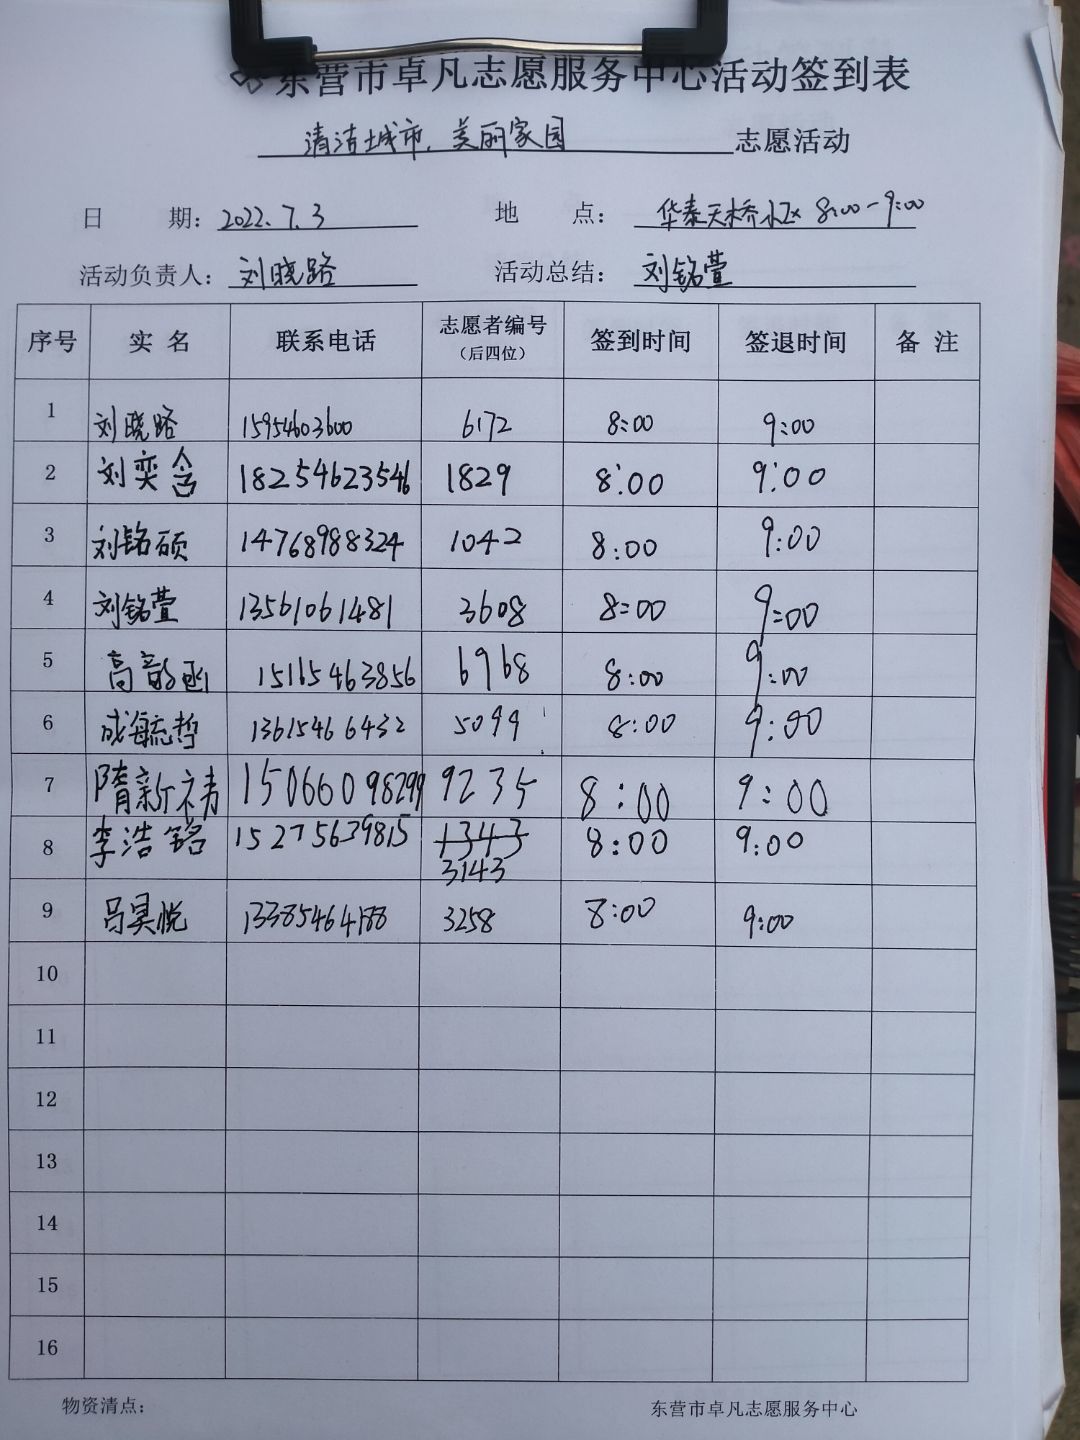 东营市卓凡志愿服务中心活动签到表
清洁城市、美丽家园 志愿活动
日 期：2022.7.3 地 点：华泰天桥小区 8:00-9:00
活动负责人：刘晓路 活动总结：刘铭萱
序号 实名 联系电话 志愿者编号（后四位） 签到时间 签退时间 备注
1 刘晓路 15954603600 6172 8:00 9:00
2 刘奕含 18254623546 1829 8:00 9:00
3 刘铭硕 14768988324 1042 8:00 9:00
4 刘铭萱 13561061481 3608 8:00 9:00
5 高韵函 15165463856 6968 8:00 9:00
6 成毓哲 13615466432 5099 8:00 9:00
7 隋新祎 15066098299 9235 8:00 9:00
8 李浩铭 15275639815 1343 8:00 9:00
3143
9 吕昊悦 13385464188 3258 8:00 9:00
10
11
12
13
14
15
16
物资清点： 东营市卓凡志愿服务中心